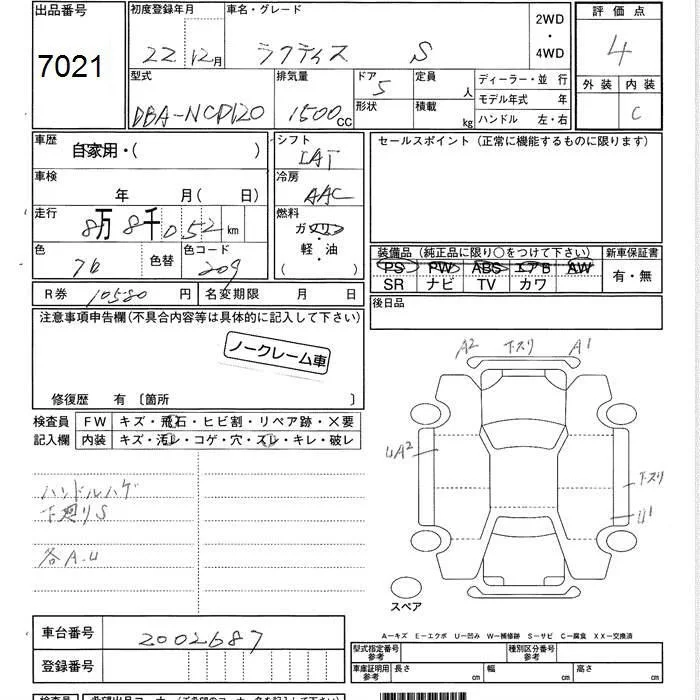 出品番号 初度登録年月 車名・グレード 2WD・4WD 評価点
7021 22年12月 ラクティス S 4
型式 排気量 ドア 5 定員 人 ディーラー・並行 外装 内装
DBA-NCP120 1500cc 形状 積載 kg モデル年式 年 C
ハンドル 左・右
車歴 自家用・( ) シフト IAT セールスポイント (正常に機能するものに限ります)
車検 年 月(日) 冷房 AAC
走行 8万8千052km 燃料 ガソリン・軽・油 ( )
色 色替 色コード 209
装備品 (純正品に限り○をつけて下さい) 新車保証書
PS PW ABS エアB AW 有・無
SR ナビ TV カワ
R券 10580円 名変期限 月 日 後日品
注意事項申告欄(不具合内容等は具体的に記入して下さい)
ノークレーム車
修復歴 有 〔箇所 〕
検査員 FW キズ・飛石・ヒビ割・リペア跡・×要
記入欄 内装 キズ・汚レ・コゲ・穴・スレ・キレ・破レ
A2 下スリ A1
UA2
下スリ
U1
ハンドルハゲ
下廻りS
各A.U
スペア
車台番号 2002687
登録番号
A-キズ E-エクボ U-凹み W-補修跡 S-サビ C-腐食 XX-交換済
型式指定番号 参考 種別区分番号 参考
車庫証明用 参考 長さ cm 幅 cm 高さ cm